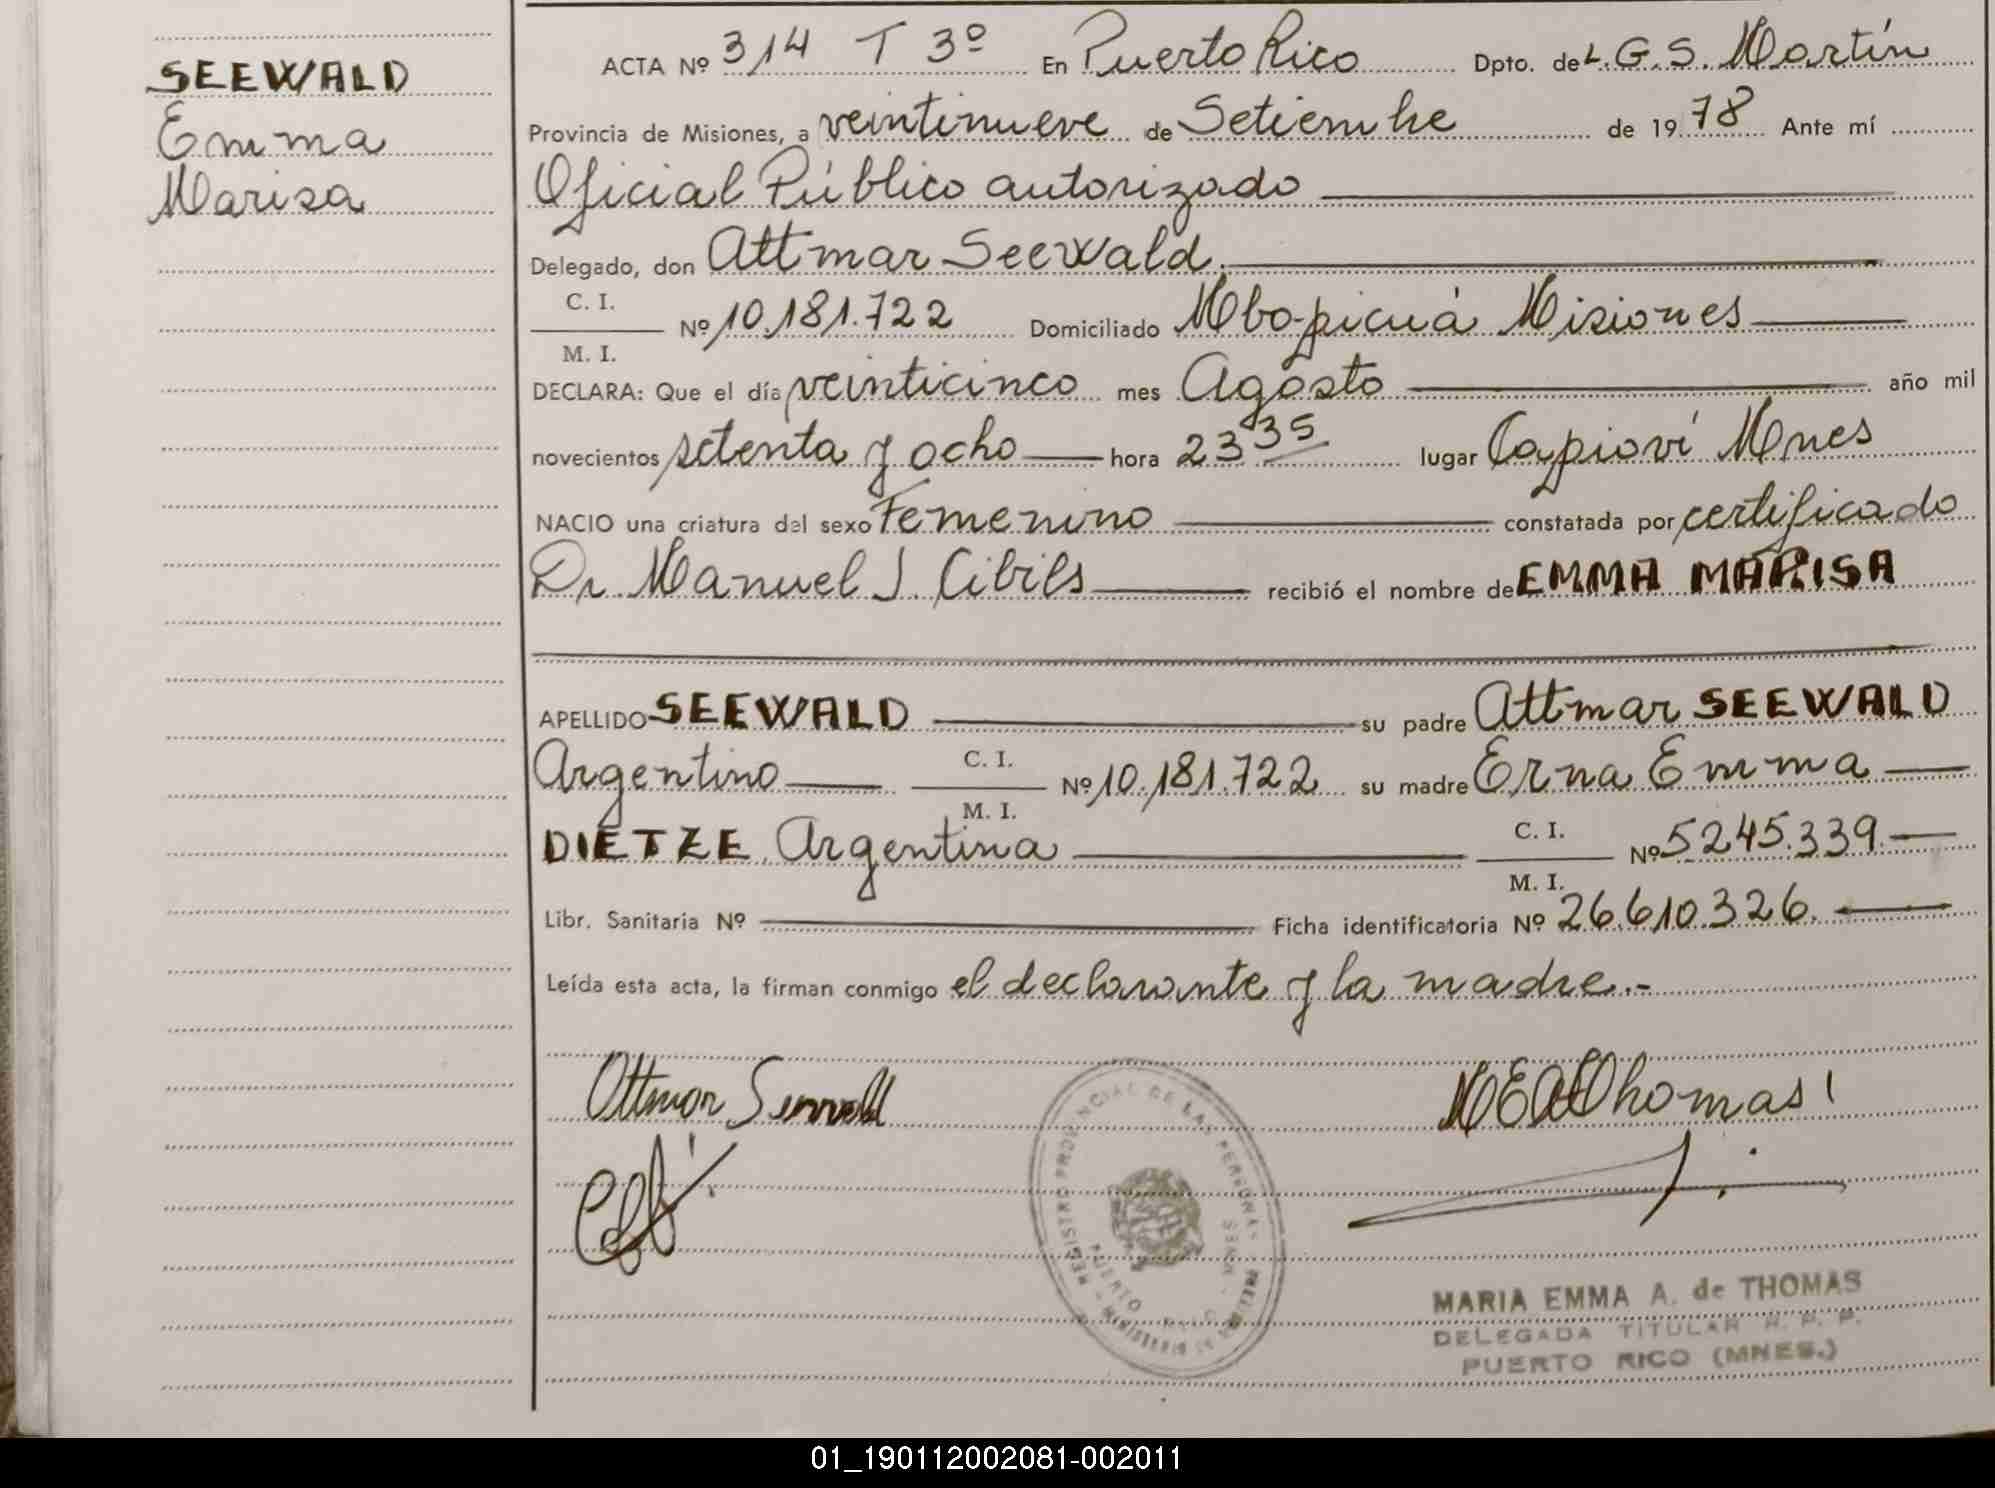 SEEWALD
Emma
Marisa
ACTA Nº 314 T 3º En Puerto Rico Dpto. de L.G.S. Martín
Provincia de Misiones, a veintinueve de Setiembre de 1978 Ante mí
Oficial Público autorizado
Delegado, don Attmar Seewald
C. I.
M. I.
Nº 10.181.722 Domiciliado Mbopicuá Misiones
DECLARA: Que el día veinticinco mes Agosto año mil
novecientos setenta y ocho hora 23 35 lugar Capioví Mnes
NACIO una criatura del sexo Femenino constatada por certificado
Dr Manuel J. Cibils recibió el nombre de EMMA MARISA
APELLIDO SEEWALD su padre Attmar SEEWALD
Argentino C. I. M. I. Nº 10.181.722 su madre Erna Emma
DIETZE Argentina C. I. M. I. Nº 5245.339.
Libr. Sanitaria Nº Ficha identificatoria Nº 26.610.326.
Leída esta acta, la firman conmigo el declarante y la madre.-
Ottmar Seewald
Thomas
REGISTRO PROVINCIAL DE LAS PERSONAS
PUERTO RICO
MNES
MARIA EMMA A. de THOMAS
DELEGADA TITULAR R. P. P.
PUERTO RICO (MNES.)
01_190112002081-002011